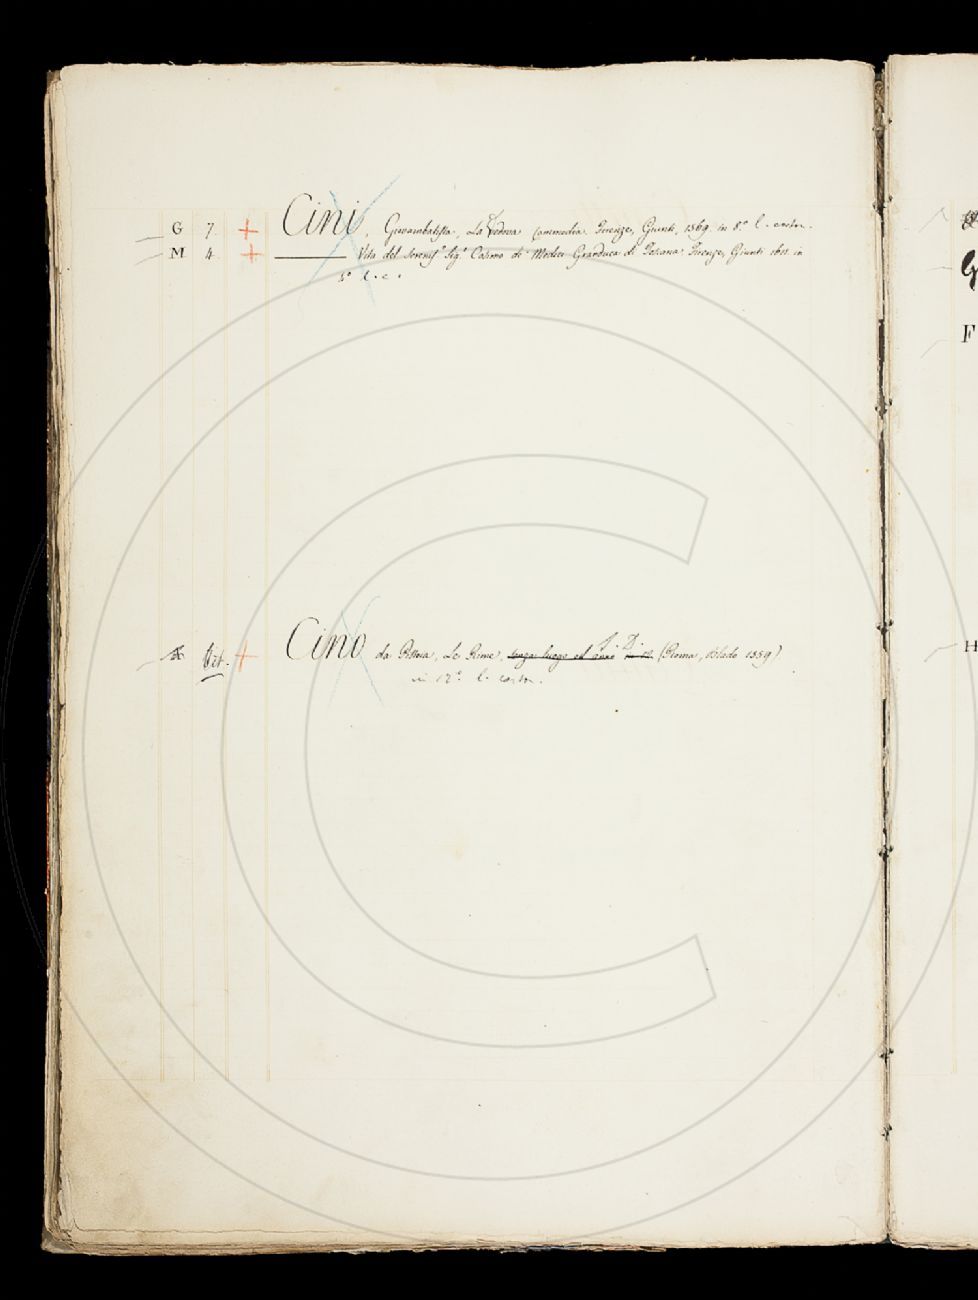 G 7. + Cini, Giovambatista, La Vedova Commedia. Firenze, Giunti, 1569. in 8.º l. carton.
M 4. + ——— Vita del Serenis.º Sig.º Cosimo de Medici Granduca di Toscana. Firenze, Giunti 1611. in
8º l. c.
A + Cino da Pistoia, Le Rime, senza luogo ed anno (Roma, Blado 1559)
in 12º l. carton.
F
H